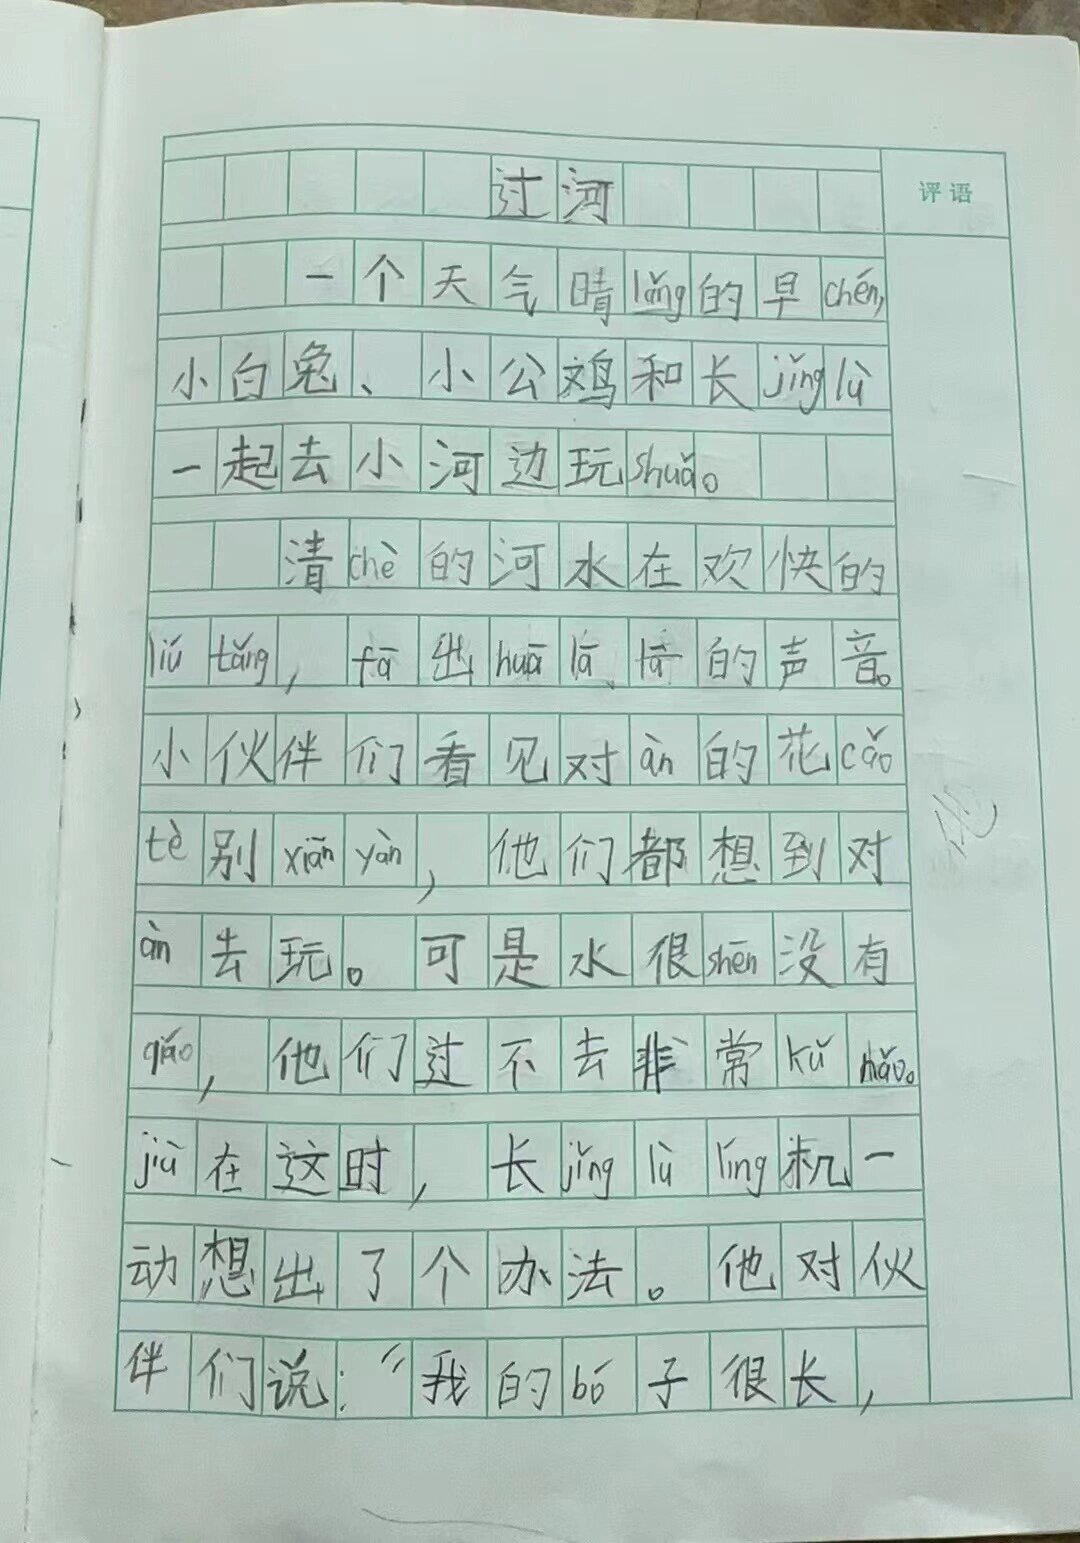 评语
过河
一个天气晴lǎng的早chén,
小白兔、小公鸡和长jǐng lù
一起去小河边玩shuǎ。
清chè的河水在欢快的
liú tǎng, fā出huā lā lā的声音。
小伙伴们看见对àn的花cǎo
tè别xiān yàn, 他们都想到对
àn去玩。可是水很shēn没有
qiáo, 他们过不去非常kǔ nǎo。
jiù在这时, 长jǐng lù líng机一
动想出了个办法。他对伙
伴们说:“我的bó子很长,